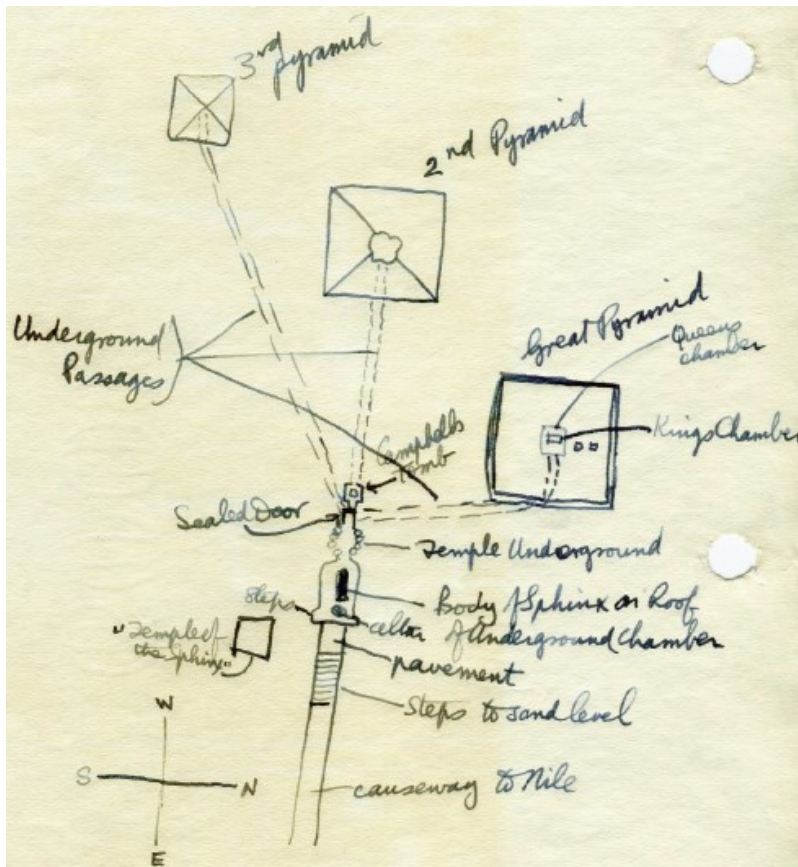 3rd
pyramid
2nd Pyramid
Underground
Passages
Great Pyramid
Queens
chamber
Kings Chamber
Campbells
Tomb
Sealed Door
Temple Underground
Steps
Body of Sphinx on Roof
altar of Underground Chamber
"Temple of
the Sphinx"
pavement
Steps to sand level
W
S
N
E
causeway to Nile